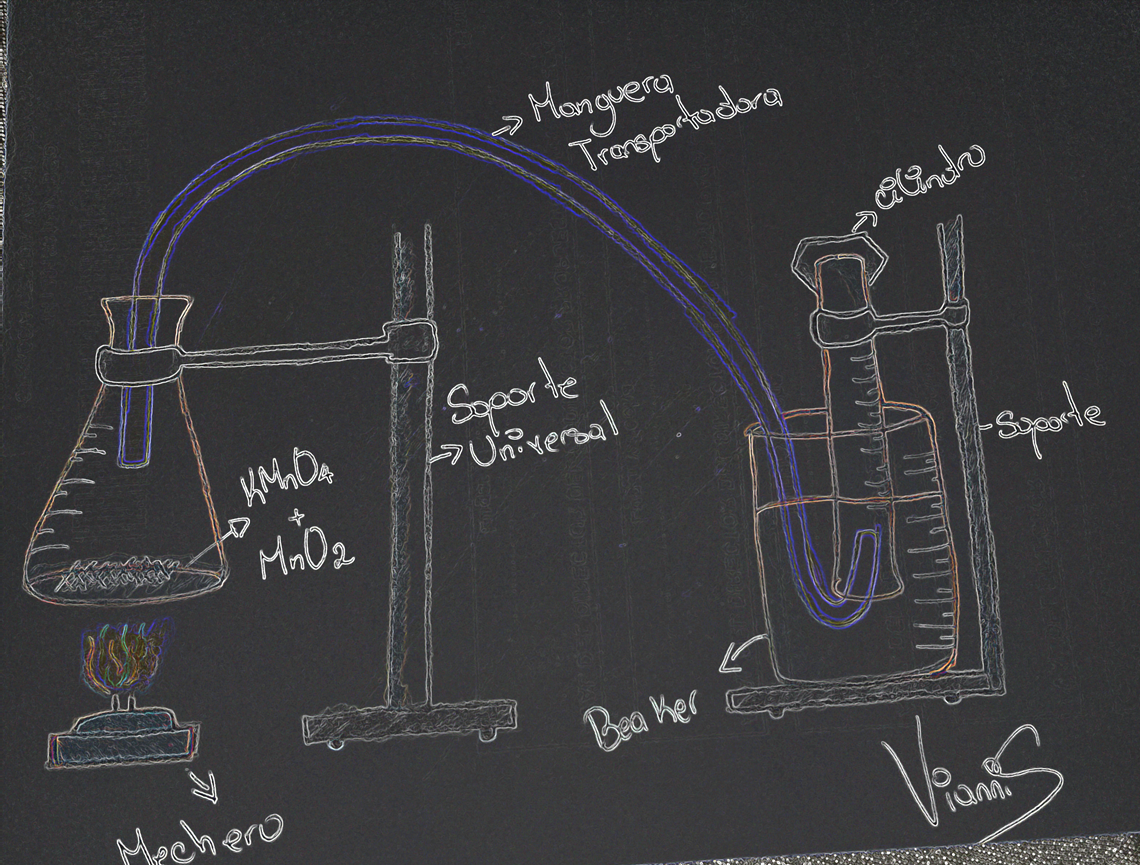 Manguera
Transportadora
cilindro
Soporte
Universal
Soporte
KMnO4
+
MnO2
Beaker
Viannis
Mechero